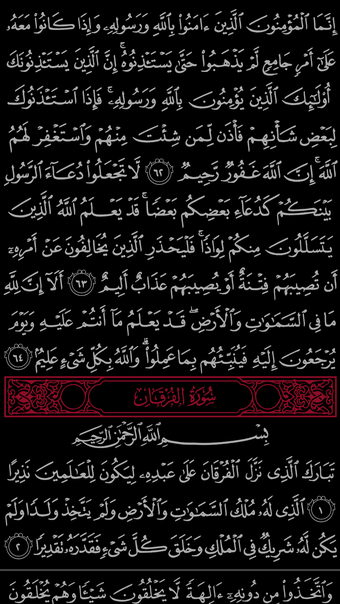 إِنَّمَا ٱلْمُؤْمِنُونَ ٱلَّذِينَ ءَامَنُوا۟ بِٱللَّهِ وَرَسُولِهِۦ وَإِذَا كَانُوا۟ مَعَهُۥ
عَلَىٰٓ أَمْرٍ جَامِعٍ لَّمْ يَذْهَبُوا۟ حَتَّىٰ يَسْتَـْٔذِنُوهُ ۚ إِنَّ ٱلَّذِينَ يَسْتَـْٔذِنُونَكَ
أُو۟لَـٰٓئِكَ ٱلَّذِينَ يُؤْمِنُونَ بِٱللَّهِ وَرَسُولِهِۦ ۚ فَإِذَا ٱسْتَـْٔذَنُوكَ
لِبَعْضِ شَأْنِهِمْ فَأْذَن لِّمَن شِئْتَ مِنْهُمْ وَٱسْتَغْفِرْ لَهُمُ
ٱللَّهَ ۚ إِنَّ ٱللَّهَ غَفُورٌ رَّحِيمٌ ٦٢ لَّا تَجْعَلُوا۟ دُعَآءَ ٱلرَّسُولِ
بَيْنَكُمْ كَدُعَآءِ بَعْضِكُم بَعْضًا ۚ قَدْ يَعْلَمُ ٱللَّهُ ٱلَّذِينَ
يَتَسَلَّلُونَ مِنكُمْ لِوَاذًا ۚ فَلْيَحْذَرِ ٱلَّذِينَ يُخَالِفُونَ عَنْ أَمْرِهِۦٓ
أَن تُصِيبَهُمْ فِتْنَةٌ أَوْ يُصِيبَهُمْ عَذَابٌ أَلِيمٌ ٦٣ أَلَآ إِنَّ لِلَّهِ
مَا فِى ٱلسَّمَـٰوَٰتِ وَٱلْأَرْضِ ۖ قَدْ يَعْلَمُ مَآ أَنتُمْ عَلَيْهِ وَيَوْمَ
يُرْجَعُونَ إِلَيْهِ فَيُنَبِّئُهُم بِمَا عَمِلُوا۟ ۗ وَٱللَّهُ بِكُلِّ شَىْءٍ عَلِيمٌۢ ٦٤
سُورَةُ الفُرْقَانِ
بِسْمِ ٱللَّهِ ٱلرَّحْمَـٰنِ ٱلرَّحِيمِ
تَبَارَكَ ٱلَّذِى نَزَّلَ ٱلْفُرْقَانَ عَلَىٰ عَبْدِهِۦ لِيَكُونَ لِلْعَـٰلَمِينَ نَذِيرًا
١ ٱلَّذِى لَهُۥ مُلْكُ ٱلسَّمَـٰوَٰتِ وَٱلْأَرْضِ وَلَمْ يَتَّخِذْ وَلَدًا وَلَمْ
يَكُن لَّهُۥ شَرِيكٌ فِى ٱلْمُلْكِ وَخَلَقَ كُلَّ شَىْءٍ فَقَدَّرَهُۥ تَقْدِيرًا ٢
وَٱتَّخَذُوا۟ مِن دُونِهِۦٓ ءَالِهَةً لَّا يَخْلُقُونَ شَيْـًٔا وَهُمْ يُخْلَقُونَ